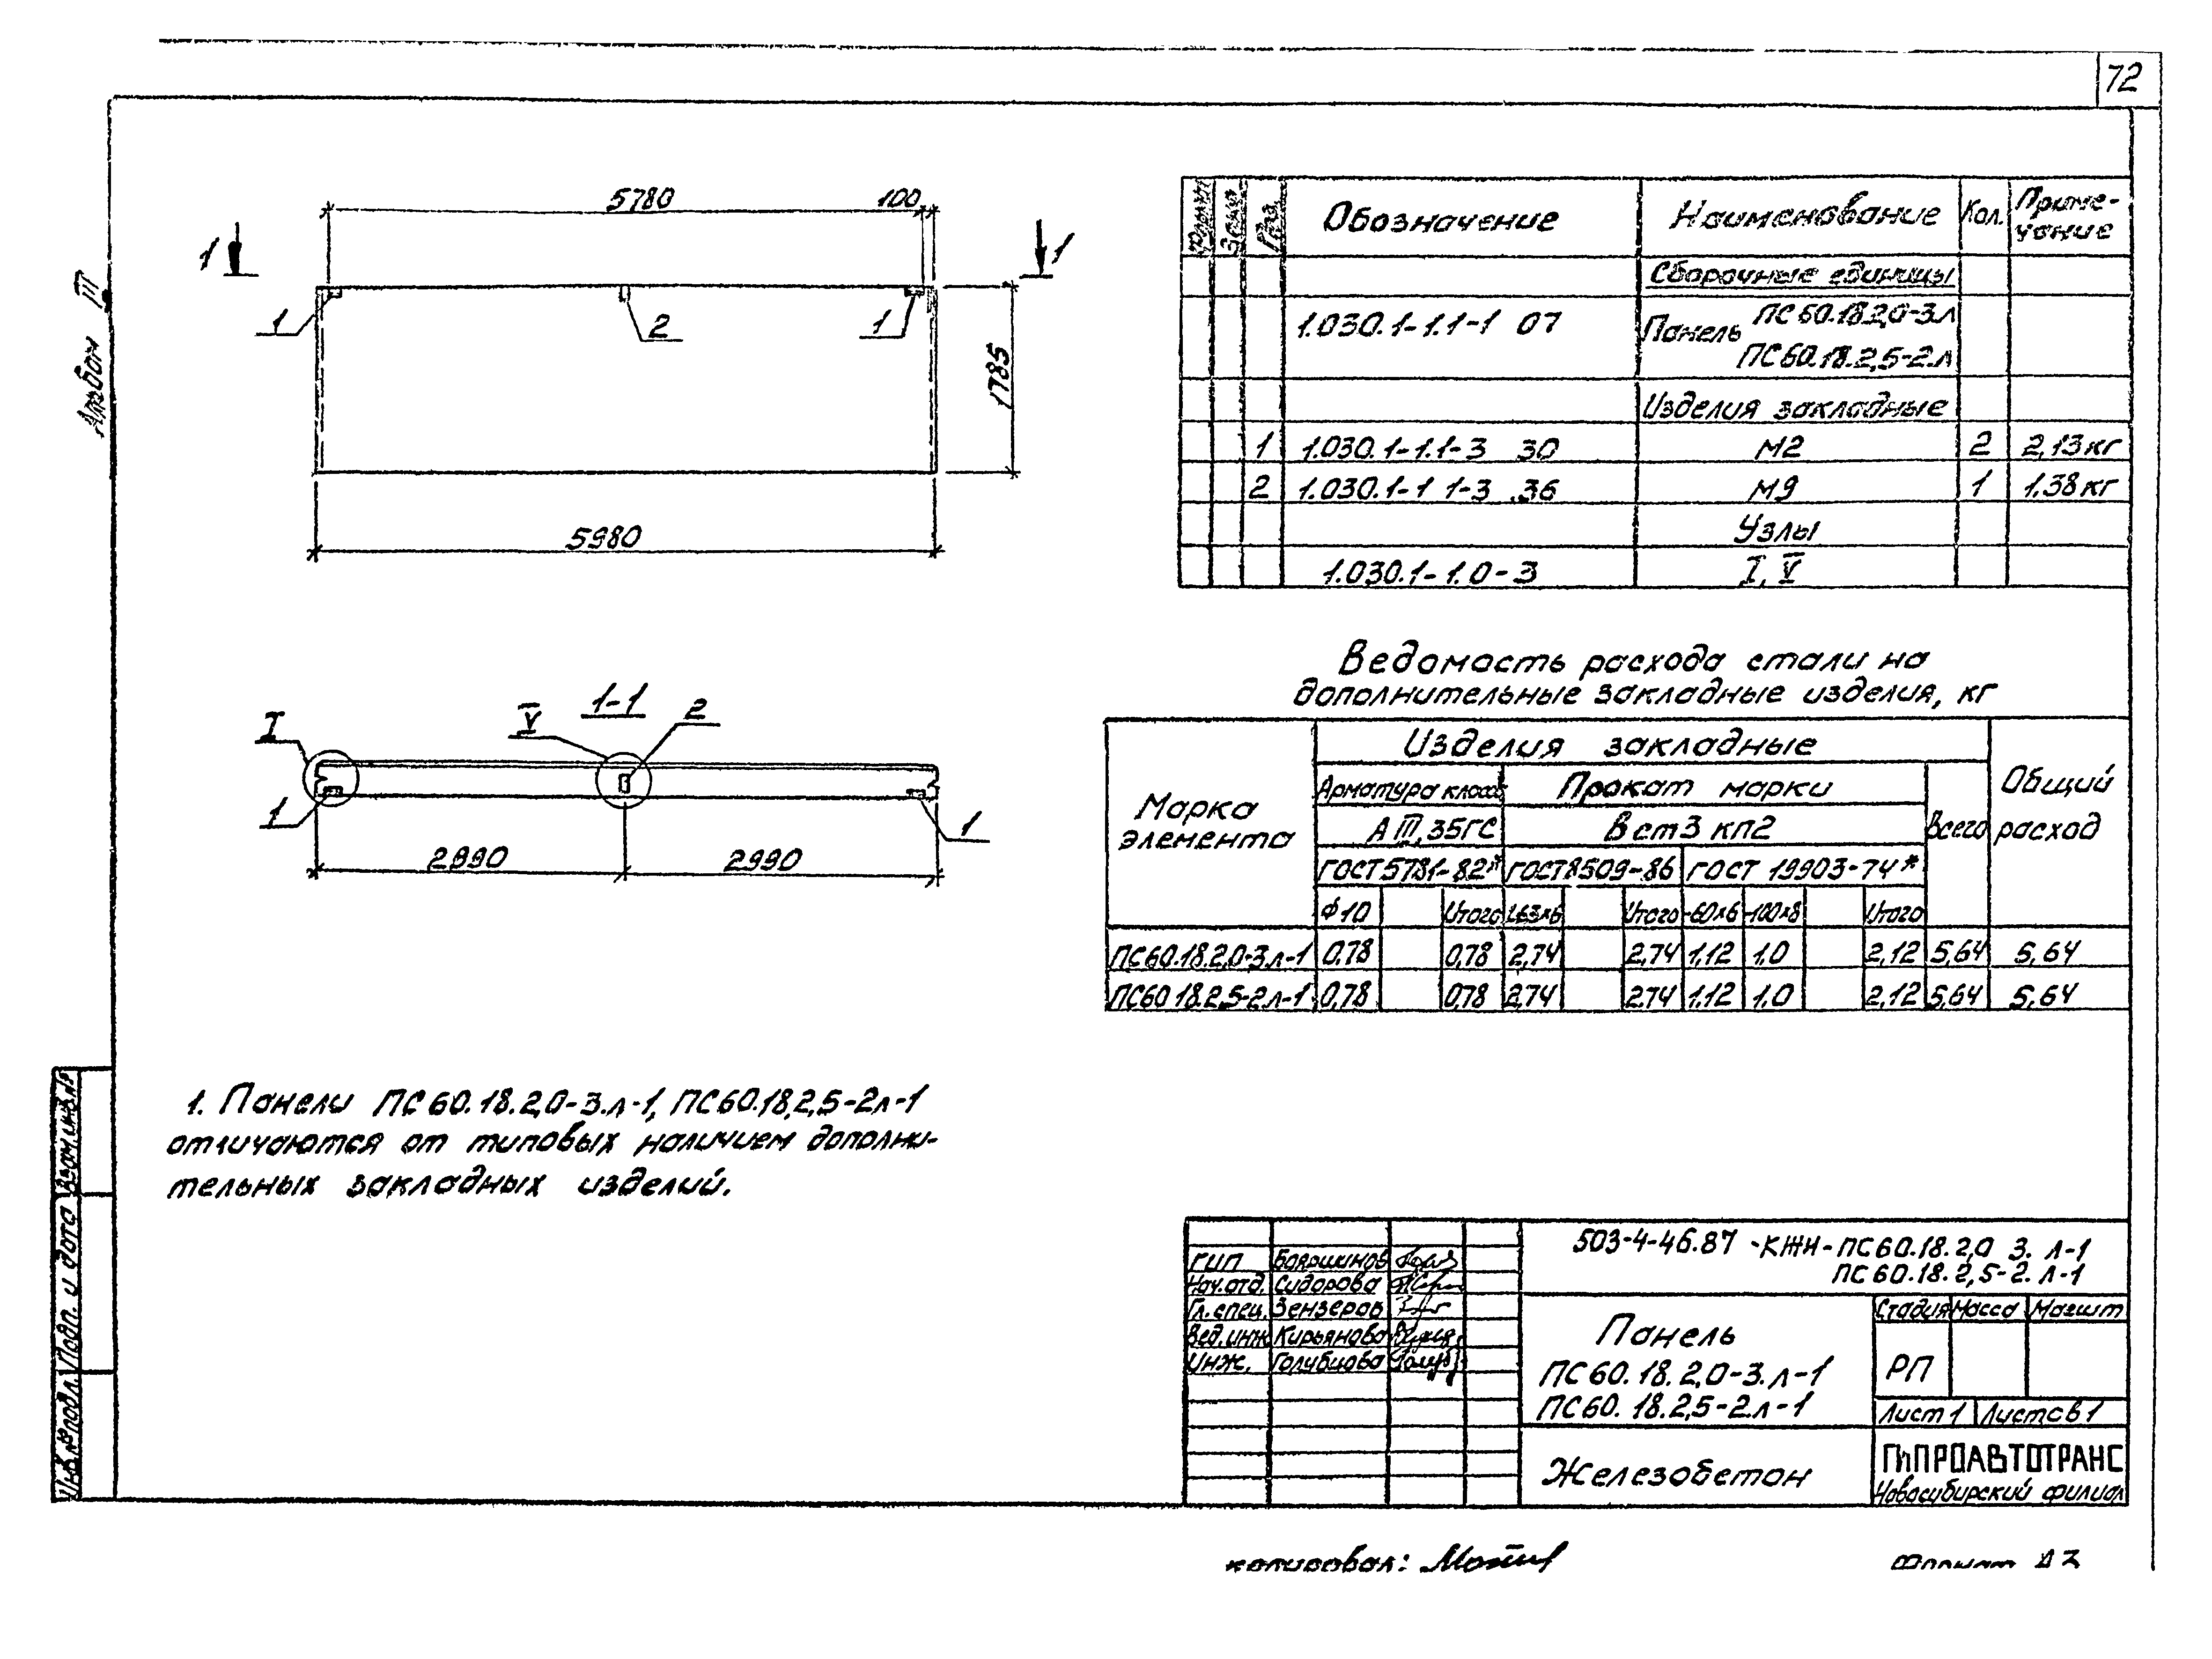 72
Альбом III
5780
100
1
1
1
2
1
1785
5980
1-1
I
V
2
1
1
2990
2990
1. Панели ПС60.18.2,0-3.л-1, ПС60.18.2,5-2л-1
отличаются от типовых наличием дополни-
тельных закладных изделий.
Формат
Зона
Поз.
Обозначение
Наименование
Кол.
Приме-
чание
Сборочные единицы
1.030.1-1.1-1 07
Панель
ПС60.18.2,0-3.л
ПС60.18.2,5-2.л
Изделия закладные
1 1.030.1-1.1-3 30 М2 2 2,13кг
2 1.030.1-1 1-3 .36 М9 1 1.38кг
Узлы
1.030.1-1.0-3 I, V
Ведомость расхода стали на
дополнительные закладные изделия, кг
Марка
элемента
Изделия закладные
Общий
расход
Арматура класс
Прокат марки
Всего
А III, 35ГС
Вст3 кп2
ГОСТ5781-82*
ГОСТ8509-86
ГОСТ 19903-74*
Ф10 Итого L63х6 Итого -60х6 -100х8 Итого
ПС60.18.2,0-3.л-1 0.78 0,78 2,74 2,74 1,12 1,0 2,12 5,64 5,64
ПС60 18.2,5-2л-1 0,78 0,78 2,74 2.74 1.12 1.0 2,12 5,64 5,64
503-4-46.87 -КЖИ-ПС60.18.2,0 3. л-1
ПС60.18.2,5-2. л-1
ГИП Бояршинов
Нач.отд. Сидорова
Гл.спец. Зензеров
Вед.инж Кирьянова
Инж. Голубцова
Панель
ПС60.18.2,0-3.л-1
ПС60.18.2,5-2.л-1
Стадия Масса Масшт
РП
Лист 1 Листов 1
Железобетон
ГИПРОАВТОТРАНС
Новосибирский филиал
Взам.инв.№
Подп. и дата
Инв.№ подл.
копировал:
Формат А3